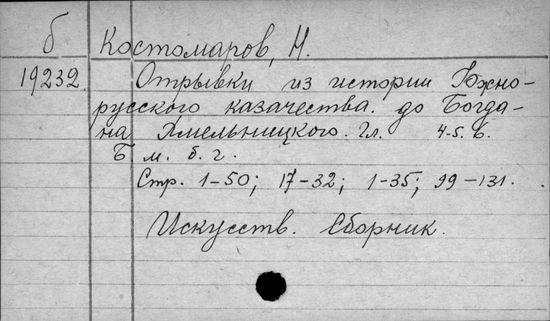 б Костомаров, Н.
19232. Отрывки из истории Южно-
русского казачества до Богда-
на Хмельницкого. Гл. 4-5. в.
Б. м. б. г.
Стр. 1-50; 17-32; 1-35; 99-131.
Искусств. Сборник.